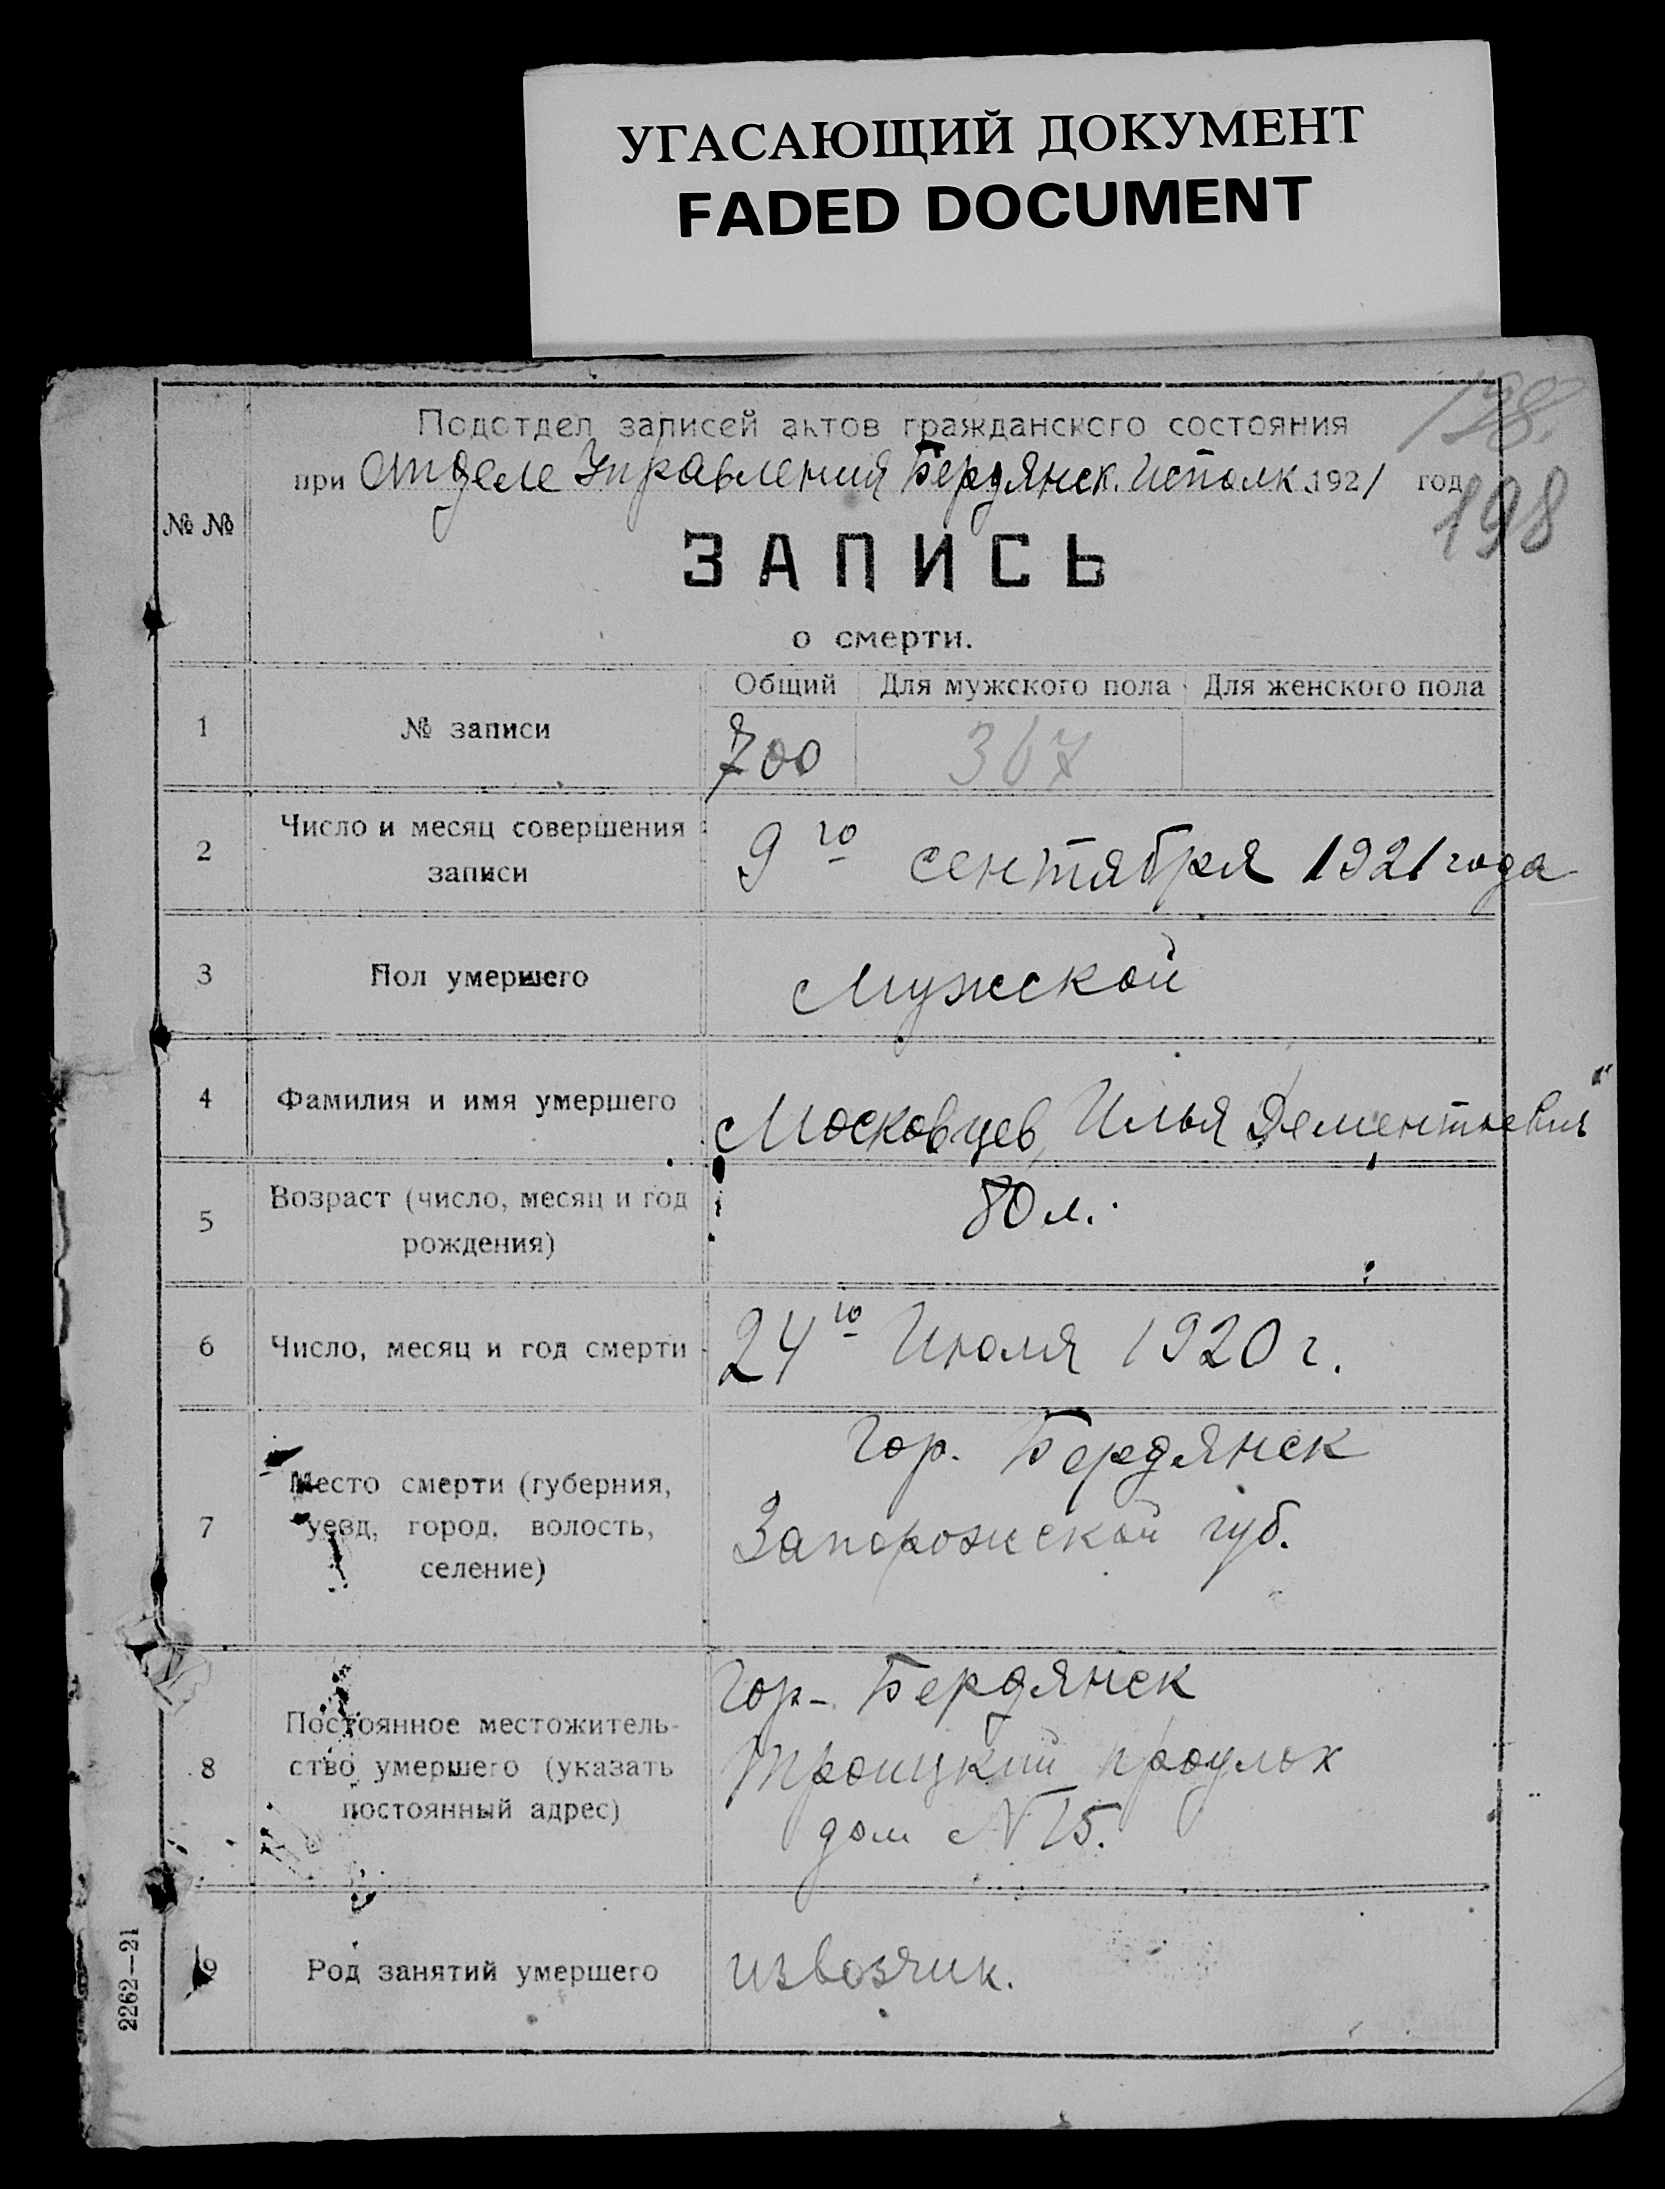 УГАСАЮЩИЙ ДОКУМЕНТ
FADED DOCUMENT
198.
Подотдел записей актов гражданского состояния
при Отделе Управления Бердянск. Исполк. 1921 год
198
№ №
ЗАПИСЬ
о смерти.
Общий Для мужского пола Для женского пола
1 № записи 700 367
2 Число и месяц совершения записи 9го сентября 1921 года
3 Пол умершего Мужской
4 Фамилия и имя умершего Московцев, Илья Дементьевич
5 Возраст (число, месяц и год рождения) 80 л.
6 Число, месяц и год смерти 24го Июля 1920 г.
7 Место смерти (губерния, уезд, город, волость, селение)
Гор. Бердянск
Запорожской губ.
8 Постоянное местожительство умершего (указать постоянный адрес)
Гор- Бердянск
Троицкий проулок
дом № 15.
9 Род занятий умершего извозчик.
2262—21